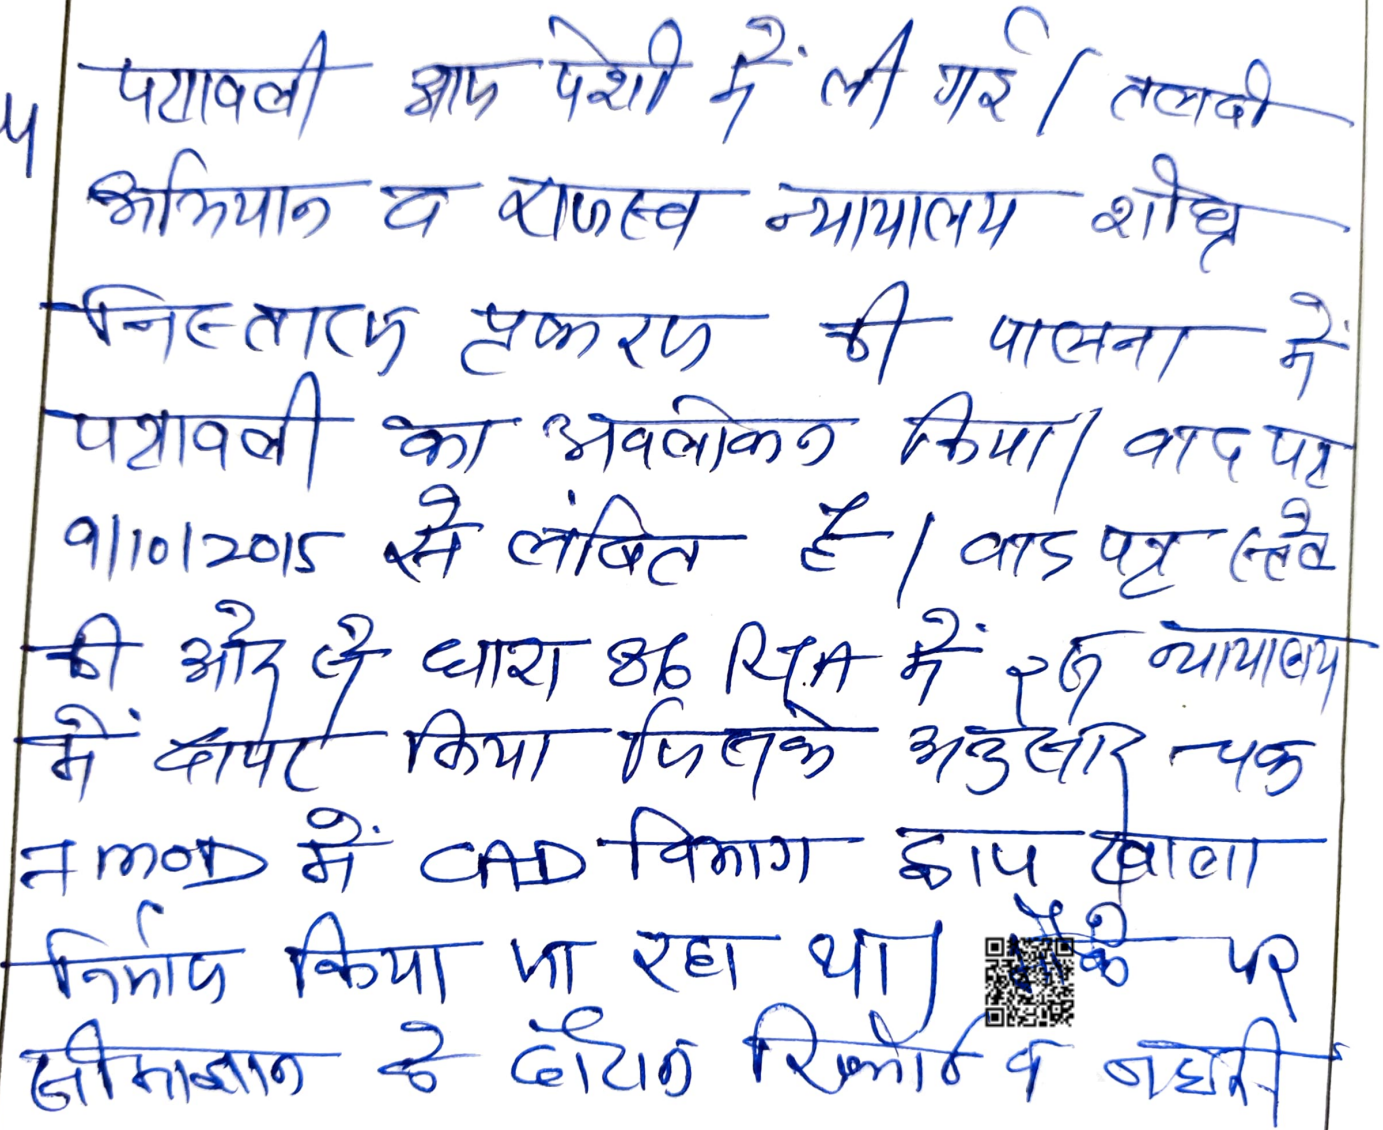 पत्रावली आज पेशी में ली गई। जल्दी
अभियान व राजस्व न्यायालय शीघ्र
निस्तारण प्रकरण की पालना में
पत्रावली का अवलोकन किया। वाद पत्र
9/10/2015 से लंबित है। वाद पत्र स्टेट
की ओर से धारा 86 में न्यायालय
में दायर किया जिसके अनुसार चक
7 MOD में CAD विभाग द्वारा खाला
निर्माण किया जा रहा था। मौके पर
सीमाज्ञान के दौरान रिकॉर्ड व